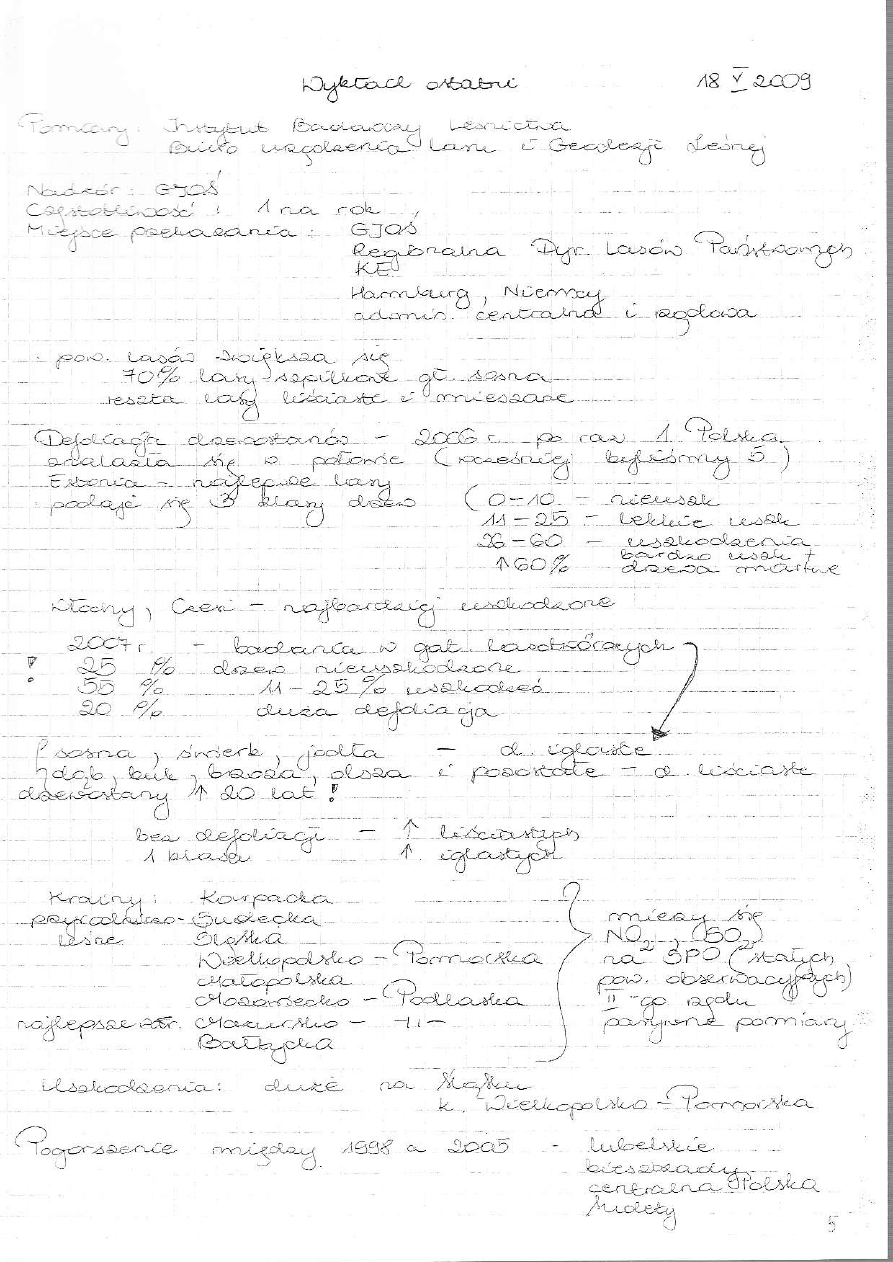 Wykład ostatni 18 V 2009
Pomiary: Instytut Badawczy Leśnictwa
Biuro Urządzenia Lasu i Geodezji Leśnej
Nadzór: GIOŚ
Częstotliwość: 1 na rok
Miejsce przekazania: GIOŚ
Regionalna Dyr. Lasów Państwowych
KE
Hamburg, Niemcy
admin. centralna i rządowa
- pow. lasów zwiększa się
70% lasy szpilkowe gł. sosna
reszta lasy liściaste i mieszane
Defoliacja drzewostanów - 2006 r. po raz 1 Polska
znalazła się w połowie (wcześniej byliśmy 5)
Estonia - najlepsze lasy
podaje się 3 klasy drzew (0-10 - nieuszk
11-25 - lekkie uszk
26-60 - uszkodzenia
↑60% bardzo uszk +
drzewa martwe
Włochy, Czesi - najbardziej uszkodzone
2007 r. - badania w gat. lasotwórczych
! 25 % drzew nieuszkodzone
55 % 11-25% uszkodzeń
20 % duża defoliacja
{ sosna, świerk, jodła - d. iglaste
dąb, buk, brzoza, olsza i pozostałe - d. liściaste
drzewostany ↑ 20 lat!
bez defoliacji - ↑ liściastych
1 klasa ↑ iglastych
Krainy: Karpacka
przyrodniczo- Sudecka
leśne Śląska
Wielkopolsko-Pomorska
Małopolska
Mazowiecko-Podlaska
najlepsze Mazursko- -"-
Bałtycka
mierzy się
NO2, (SO2)
na SPO (stałych
pow. obserwacyjnych)
II-go rzędu
pasywne pomiary
Uszkodzenia: duże na Śląsku
k. Wielkopolsko-Pomorska
Pogorszenie między 1998 a 2005 - lubelskie
bieszczady
centralna Polska
Sudety
5